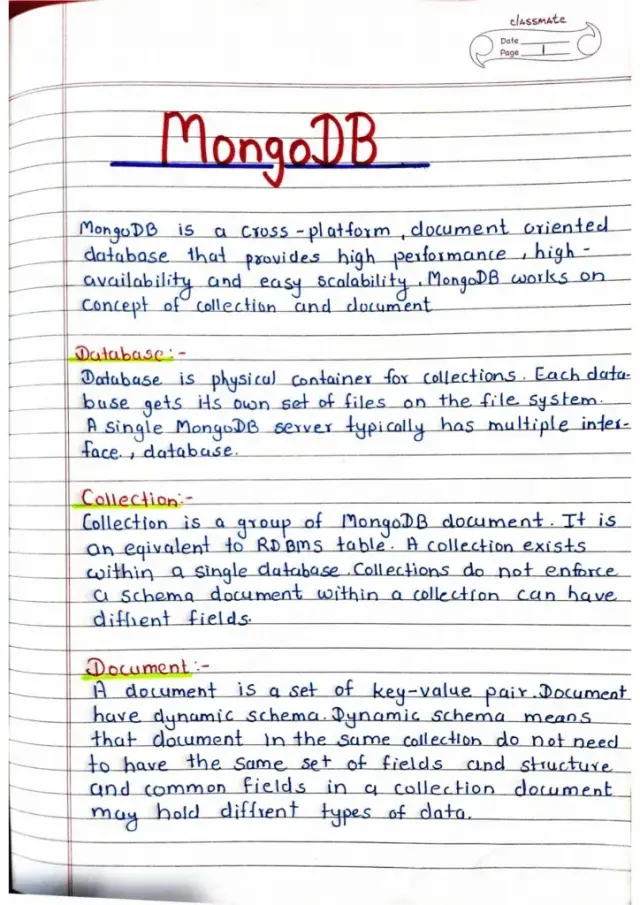 classmate
Date
Page 1
MongoDB
MongoDB is a cross-platform, document oriented
database that provides high performance, high-
availability and easy scalability. MongoDB works on
concept of collection and document
Database:-
Database is physical container for collections. Each data-
base gets its own set of files on the file system.
A single MongoDB server typically has multiple inter-
face., database.
Collection:-
Collection is a group of MongoDB document. It is
an eqivalent to RDBMS table. A collection exists
within a single database. Collections do not enforce
a schema document within a collection can have
diffient fields.
Document:-
A document is a set of key-value pair. Document
have dynamic schema. Dynamic schema means
that document in the same collection do not need
to have the same set of fields and structure
and common fields in a collection document
may hold diffient types of data.